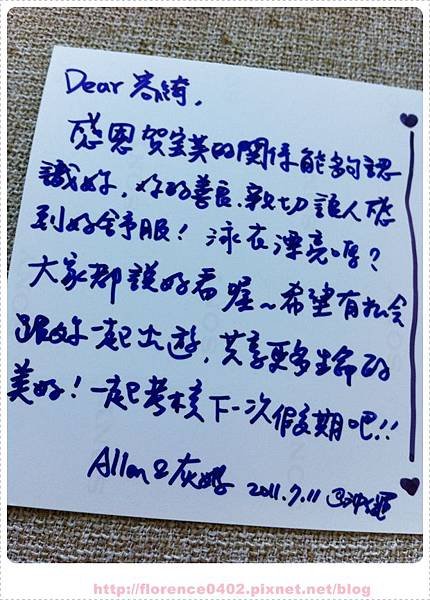 Dear 容綺,
感恩賀寶芙的關係能夠認
識妳, 妳的善良、親切讓人感
到好舒服! 泳衣漂亮嗎?
大家都說好看喔~希望有機會
跟妳一起出遊, 共享更多生命的
美好! 一起考核下一次假期吧!!
Allan & 2011.7.11
http://florence0402.pixnet.net/blog